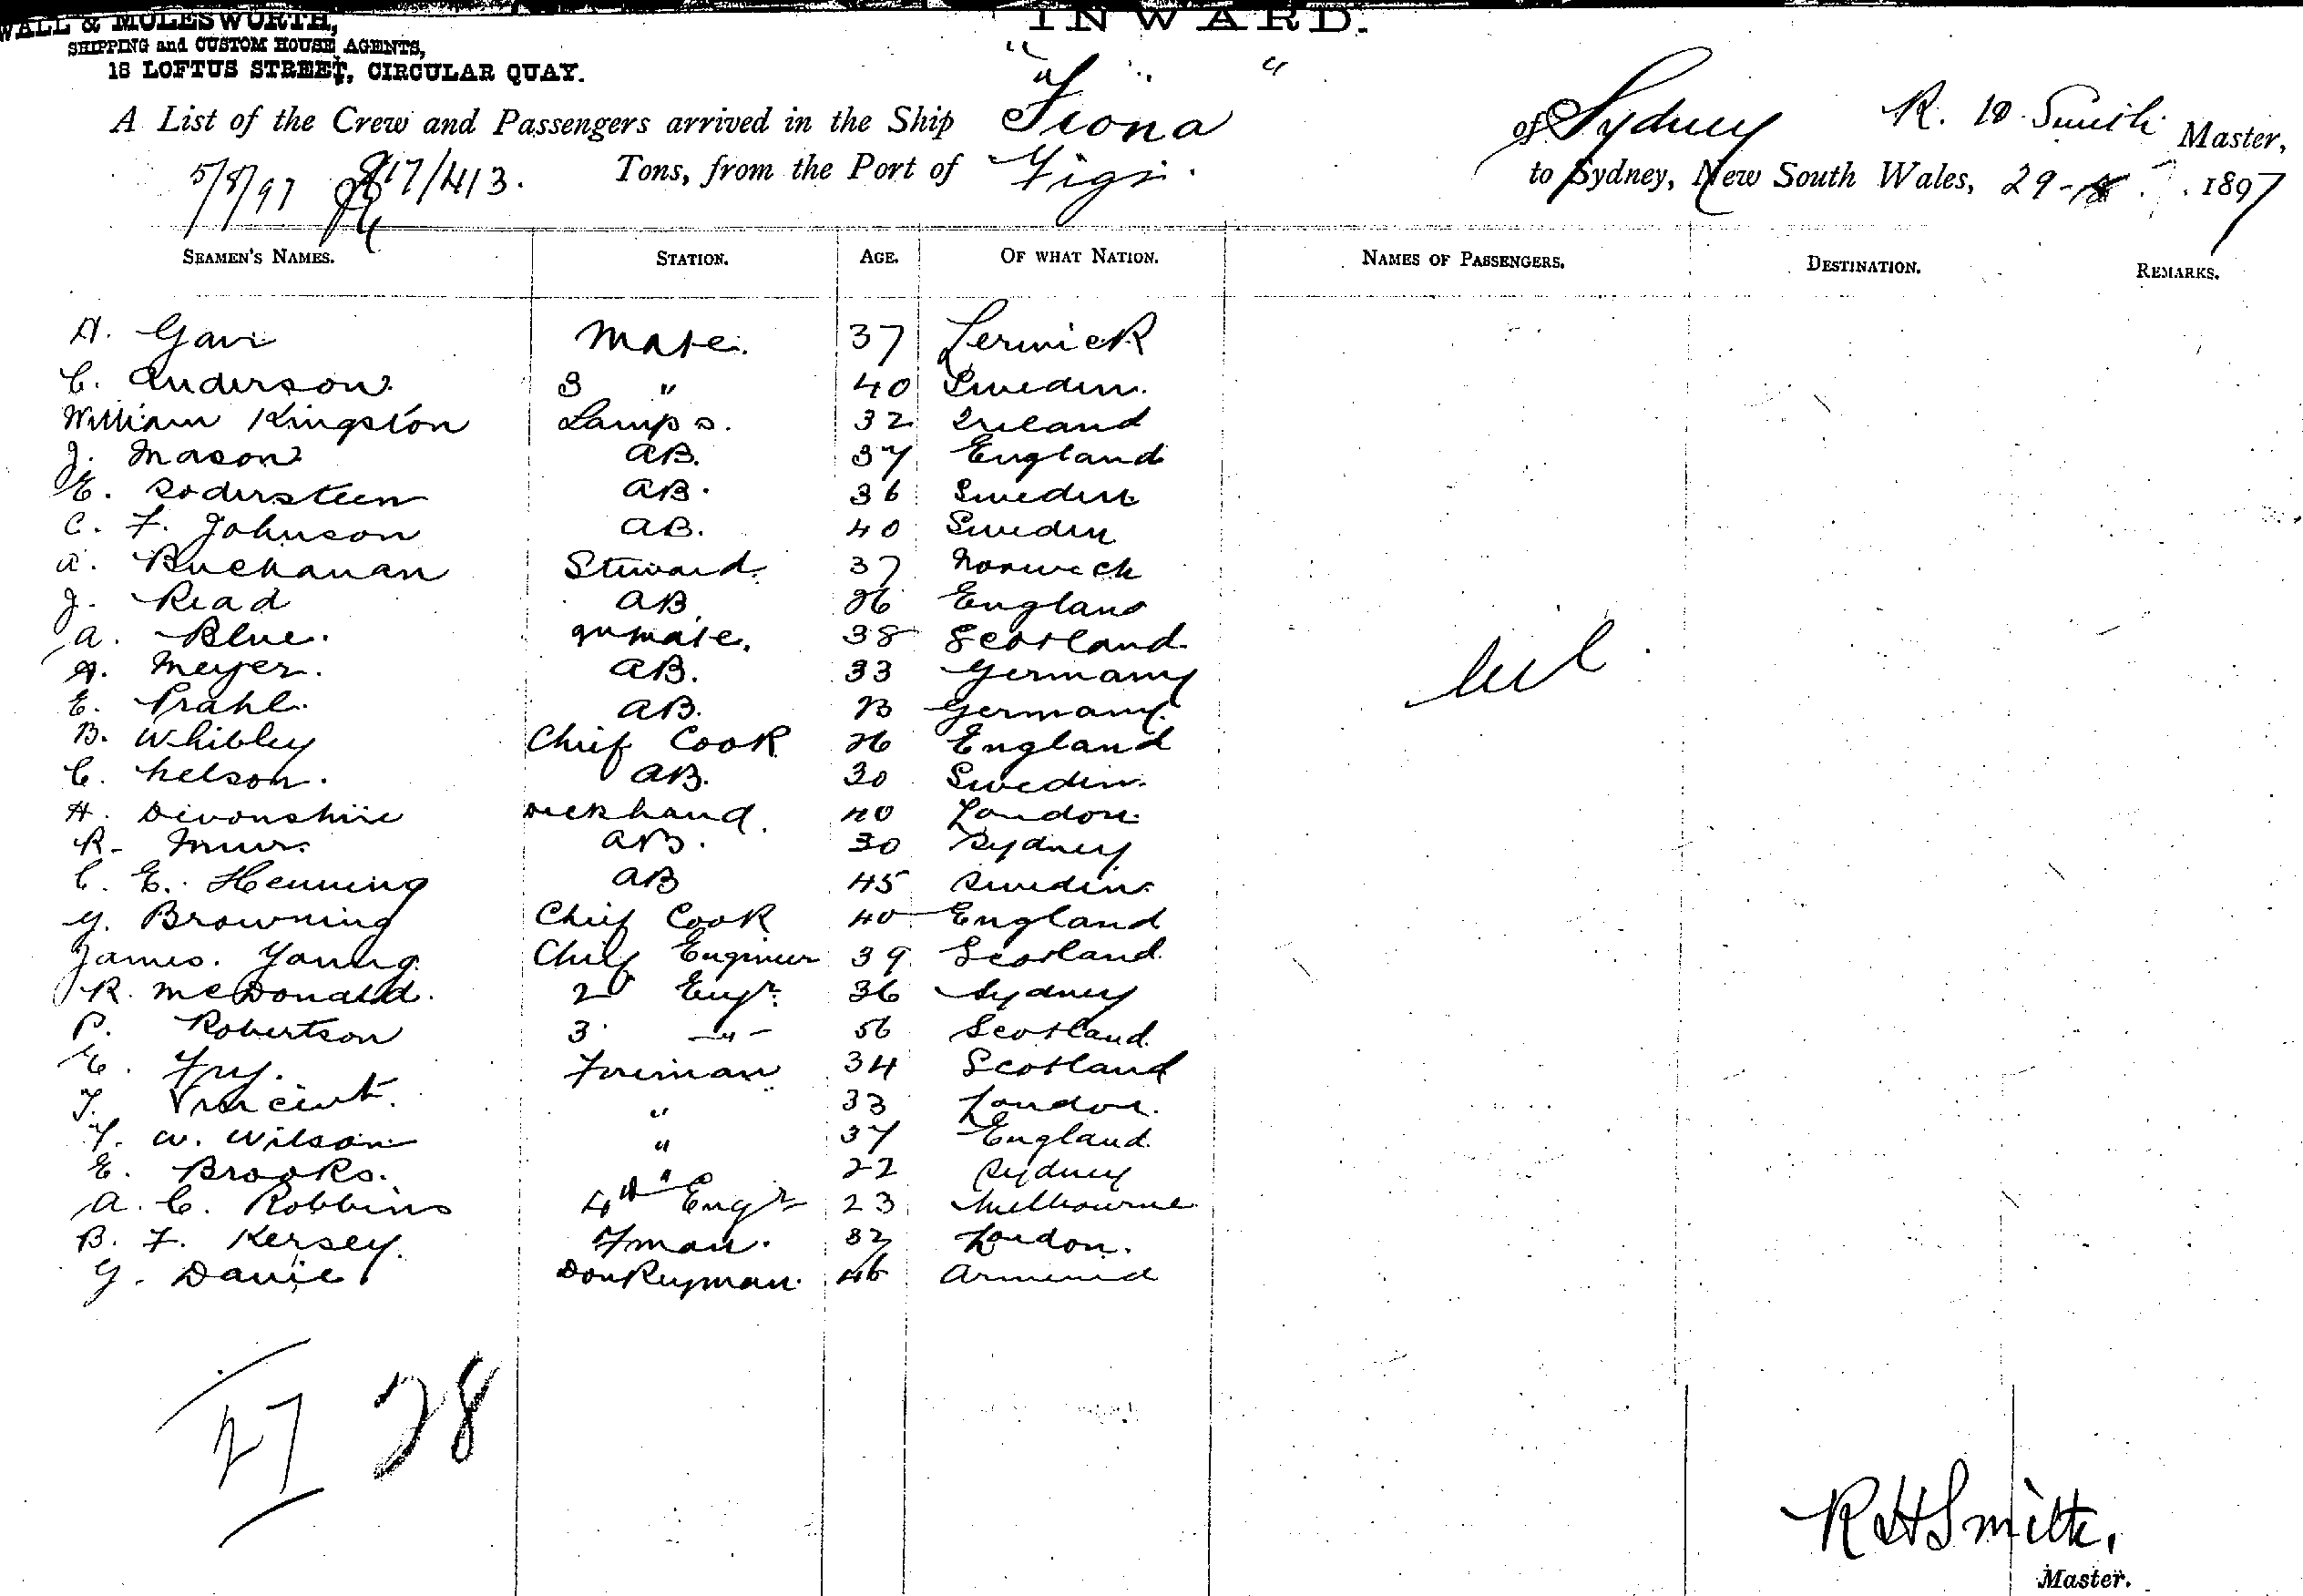 WALL & MOLESWORTH,
SHIPPING and CUSTOM HOUSE AGENTS,
18 LOFTUS STREET, CIRCULAR QUAY.
INWARD.
A List of the Crew and Passengers arrived in the Ship "Fiona" of Sydney R. Smith Master,
5/8/97 817/413. Tons, from the Port of Figi. to Sydney, New South Wales, 29- 1897
SEAMEN'S NAMES. STATION. AGE. OF WHAT NATION. NAMES OF PASSENGERS. DESTINATION. REMARKS.
Mate. 37 Lerwick
C. Anderson 3 " 40 Sweden.
William Kingston Lamps. 32 Ireland
J. Mason AB. 37 England
E. Sodersteen AB. 36 Sweden
C. F. Johnson AB. 40 Sweden
A. Buchanan Steward. 37
J. Read AB 26 England
A. Blue. 38 Scotland
A. Meyer. AB. 33 Germany
E. Prahl. AB. 23 Germany.
B. Whibley Chief Cook 26 England
C. Nelson. AB. 30 Sweden.
H. Devonshire Deckhand. 40 London.
R. Muir. AB. 30 Sydney
C. E. Henning AB 45 Sweden.
G. Browning Chief Cook 40 England
James. Young. Chief Engineer 39 Scotland
R. McDonald. 2 Engr. 36 Sydney
P. Robertson 3 -"- 56 Scotland
E. Fry. Fireman 34 Scotland
T. Vincent. " 33 London.
T. W. Wilson " 37 England.
E. Brooks. " 22 Sydney
A. C. Robbins 4th Engr 23 Melbourne
B. F. Kersey. Fman. 32 London.
G. Donkeyman. 46
nil
27 28
RHSmith,
Master.